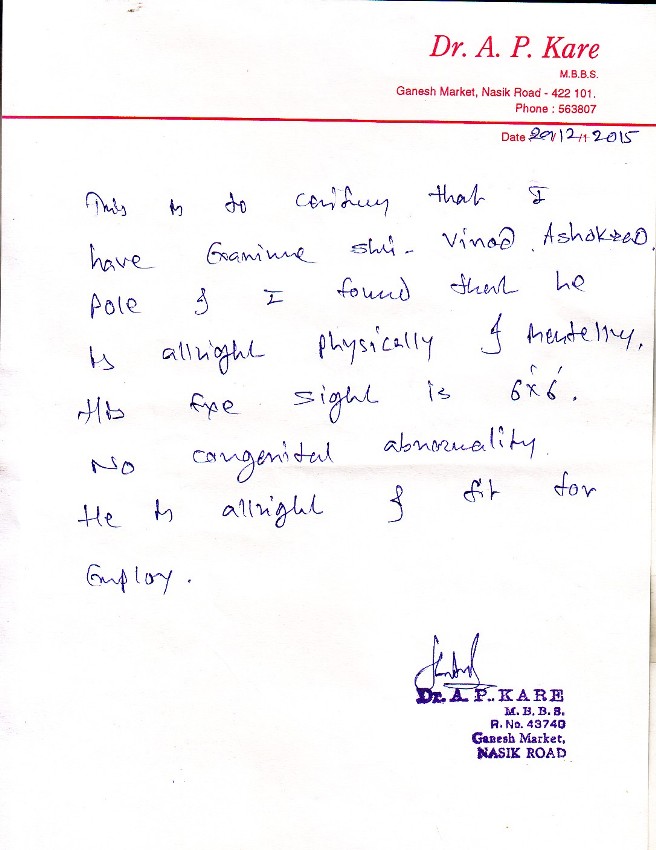 Dr. A. P. Kare
M.B.B.S.
Ganesh Market, Nasik Road - 422 101.
Phone : 563807
Date 29/12/2015
This is to certify that I
have Examine shri. Vinod Ashokrao
Pole & I found that he
is allright physically & mentelly.
His Eye sight is 6x6.
No congenital abnormality.
He is allright & fit for
Employ.
Dr. A. P. KARE
M. B. B. S.
R. No. 43740
Ganesh Market,
NASIK ROAD